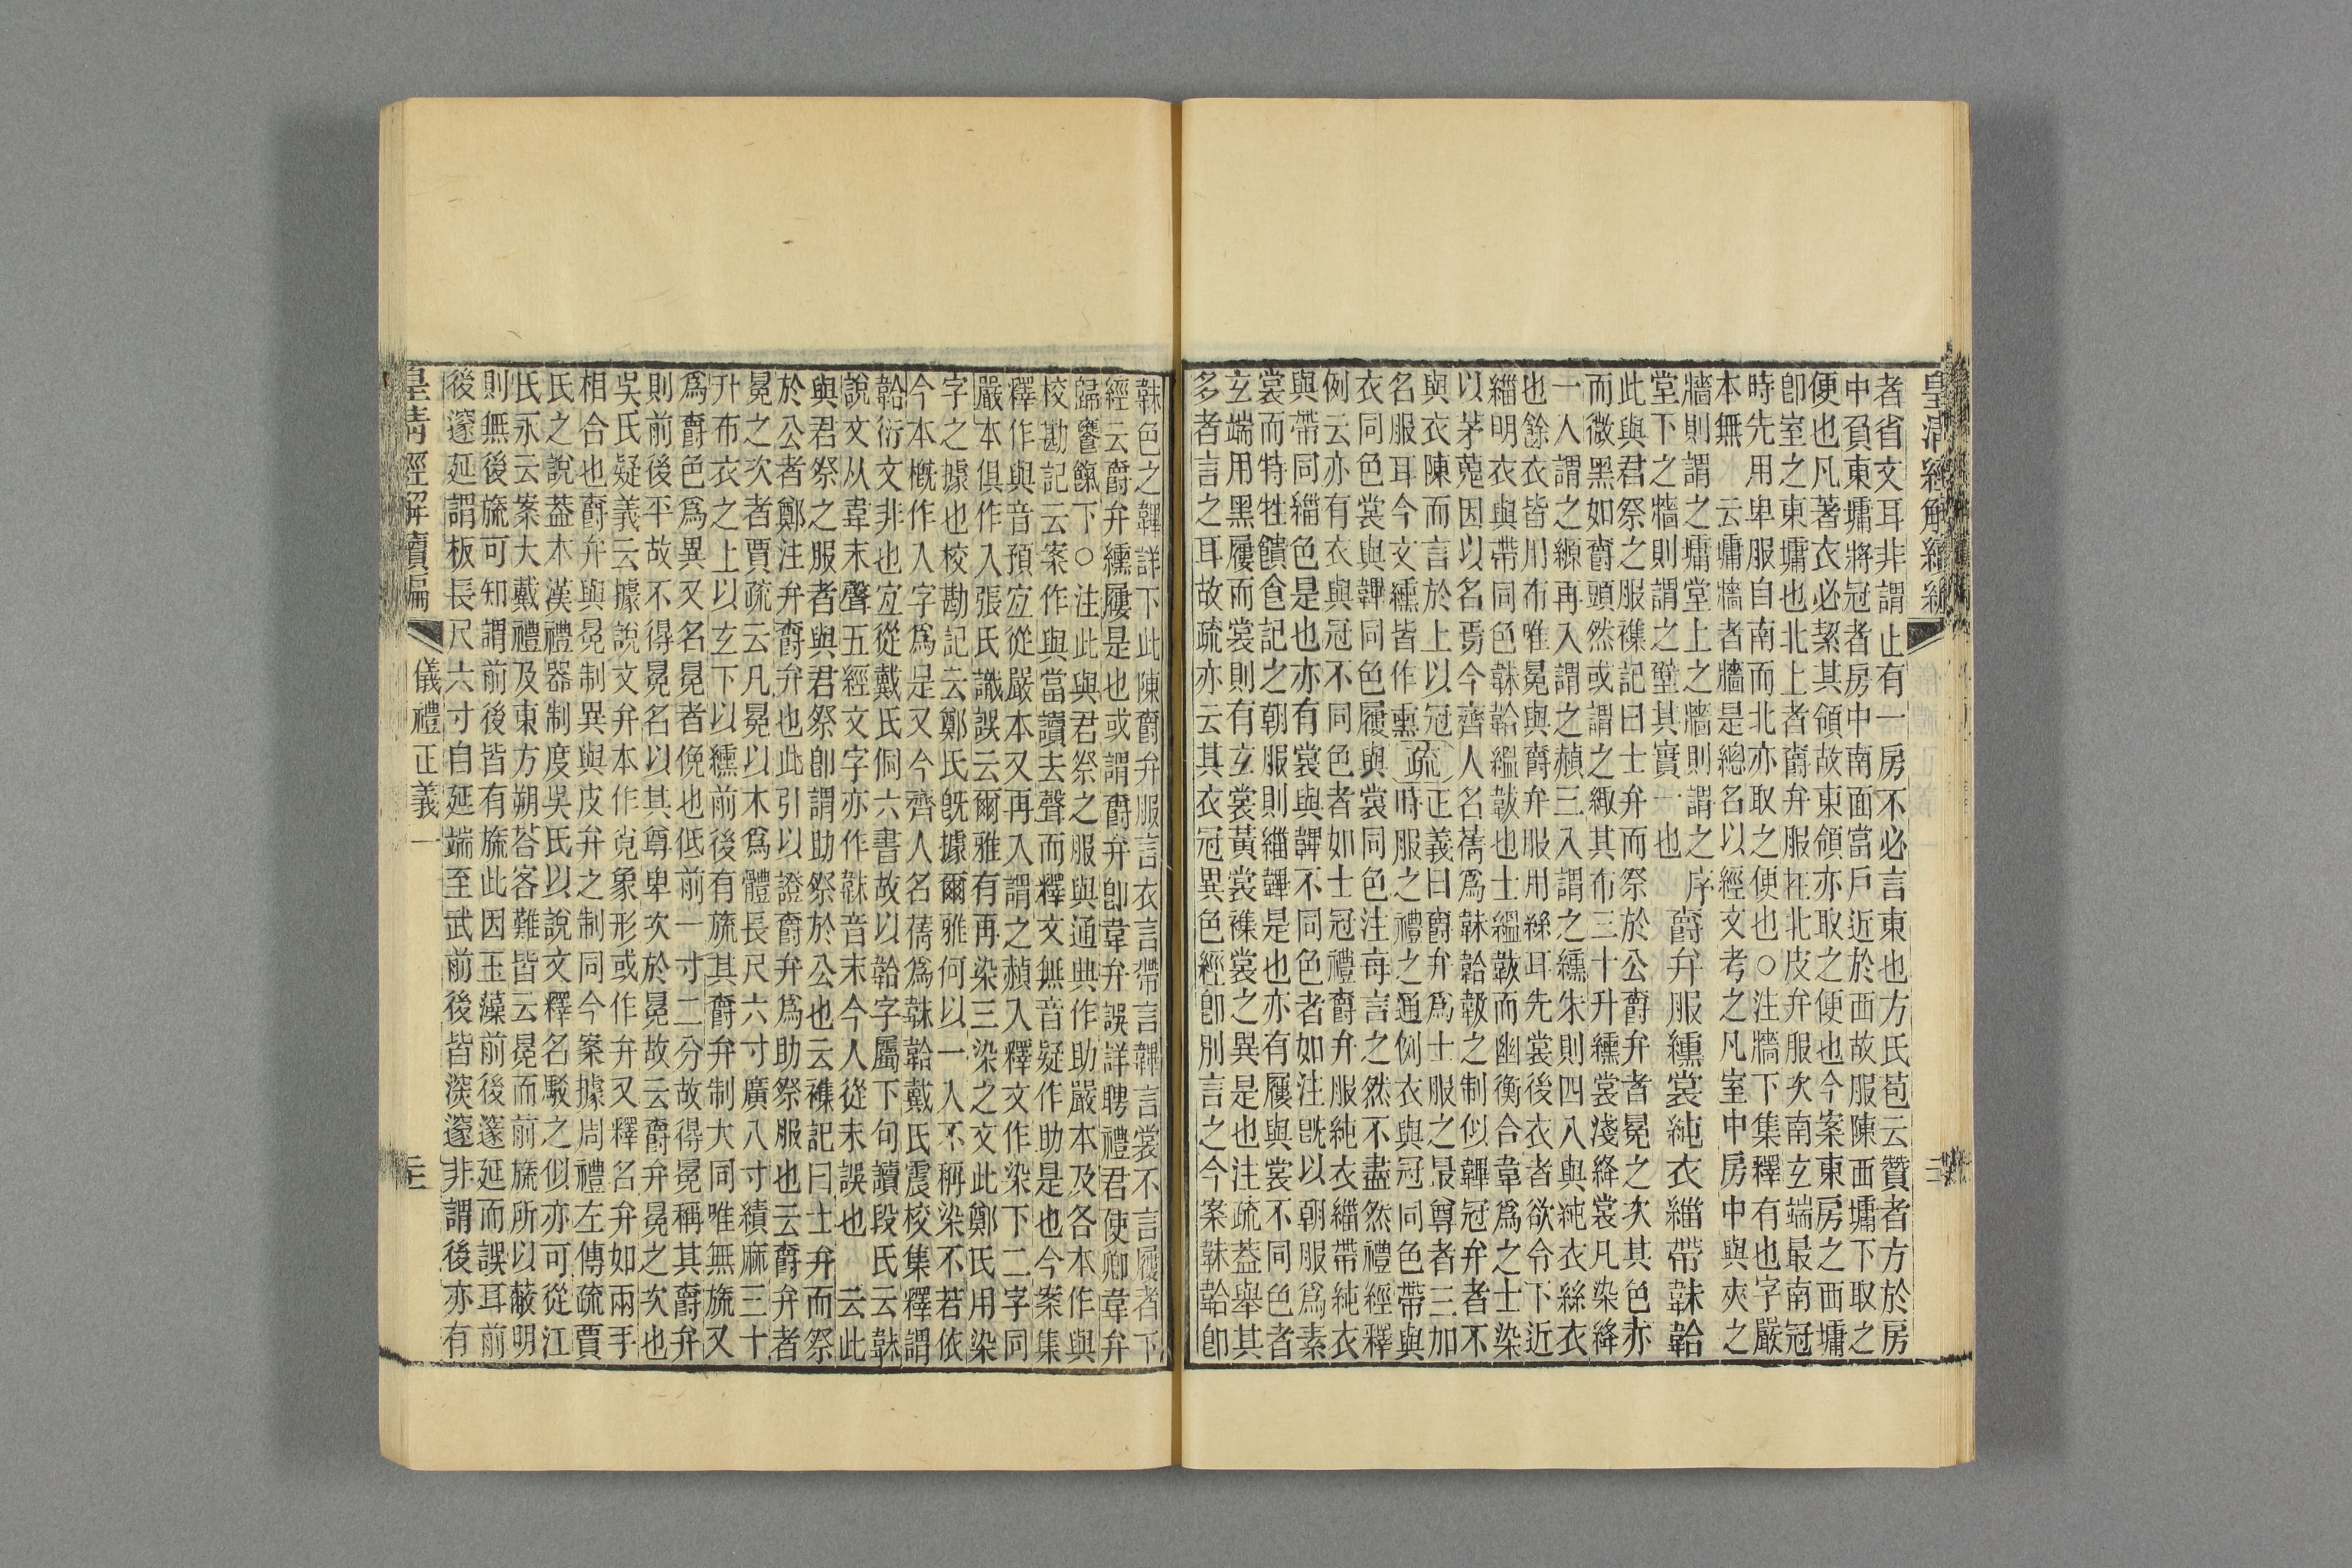 皇清經解續編
者省文耳非謂止有一房不必言東也方氏苞云贊者方於房
中負東墉將冠者房中南面當戶近於西故服陳西墉下取之
便也凡著衣必挈其領故東領亦取之便也今案東房之西墉
卽室之東墉也北上者爵弁服在北皮弁服次南玄端最南冠
時先用卑服自南而北亦取之便也○注牆下集釋有也字嚴
本無 云墉牆者牆是總名以經文考之凡室中房中與夾之
牆則謂之墉堂上之牆則謂之序
堂下之牆則謂之壁其實一也
爵弁服纁裳純衣緇帶韎韐
此與君祭之服襍記曰士弁而祭於公爵弁者冕之次其色赤
而微黑如爵頭然或謂之緅其布三十升纁裳淺絳裳凡染絳
一入謂之縓再入謂之赬三入謂之纁朱則四入與純衣絲衣
也餘衣皆用布唯冕與爵弁服用絲耳先裳後衣者欲令下近
緇明衣與帶同色韎韐縕韍也士縕韍而幽衡合韋爲之士染
以茅蒐因以名焉今齊人名蒨爲韎韐韍之制似韠冠弁者不
與衣陳而言於上以冠
名服耳今文纁皆作熏 疏 正義曰爵弁爲士服之最尊者三加
時服之禮之通例衣與冠同色帶與
衣同色裳與韠同色屨與裳同色注每言之然不盡然禮經釋
例云亦有衣與冠不同色者如士冠禮爵弁服純衣緇帶純衣
與帶同緇色是也亦有裳與韠不同色者如注旣以朝服爲素
裳而特牲饋食記之朝服則緇韠是也亦有屨與裳不同色者
玄端用黑屨而裳則有玄裳黃裳襍裳之異是也注疏葢舉其
多者言之耳故疏亦云其衣冠異色經卽別言之今案韎韐卽
韎色之韠詳下此陳爵弁服言衣言帶言韠言裳不言屨者下
經云爵弁纁屨是也或謂爵弁卽韋弁誤詳聘禮君使卿韋弁
歸饔餼下○注此與君祭之服與通典作助嚴本及各本作與
校勘記云案作與當讀去聲而釋文無音疑作助是也今案集
釋作與音預宐從嚴本又再入謂之赬入釋文作染下二字同
嚴本俱作入張氏識誤云爾雅有再染三染之文此鄭氏用染
字之據也校勘記云鄭氏旣據爾雅何以一入不稱染不若依
今本槪作入字爲是又今齊人名蒨爲韎韐戴氏震校集釋謂
韐衍文非也宐從戴氏侗六書故以韐字屬下句讀段氏云韎
說文从韋末聲五經文字亦作韎音末今人從未誤也 云此
與君祭之服者與君祭卽謂助祭於公也云襍記曰士弁而祭
於公者鄭注弁爵弁也此引以證爵弁爲助祭服也云爵弁者
冕之次者賈疏云凡冕以木爲體長尺六寸廣八寸績麻三十
升布衣之上以玄下以纁前後有旒其爵弁制大同唯無旒又
爲爵色爲異又名冕者俛也低前一寸二分故得冕稱其爵弁
則前後平故不得冕名以其尊卑次於冕故云爵弁冕之次也
吳氏疑義云據說文弁本作𠒷象形或作弁又釋名弁如兩手
相合也爵弁與冕制異與皮弁之制同今案據周禮左傳疏賈
氏之說葢本漢禮器制度吳氏以說文釋名駁之似亦可從江
氏永云案大戴禮及東方朔荅客難皆云冕而前旒所以蔽明
則無後旒可知謂前後皆有旒此因玉藻前後邃延而誤耳前
後邃延謂板長尺六寸自延端至武前後皆深邃非謂後亦有
皇清經解續編 儀禮正義一